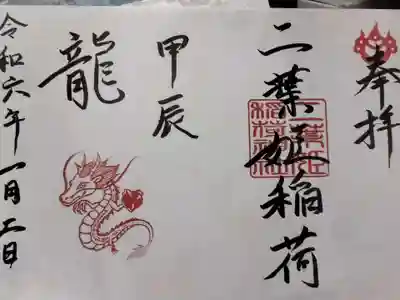 奉拝
二葉姫稲荷
甲辰
龍
令和六年一月 日